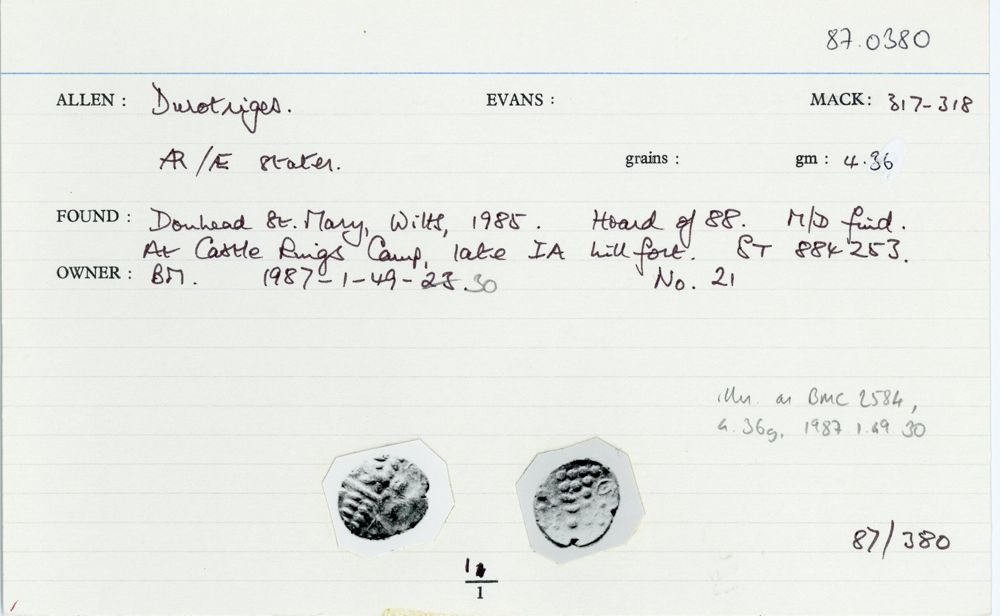 87.0380
ALLEN : Durotriges. EVANS : MACK: 317-318
AR/Æ Stater. grains : gm : 4.36
FOUND : Donhead St. Mary, Wilts, 1985. Hoard of 88. M/D find.
At Castle Rings Camp, late IA hill fort. ST 884253.
OWNER : BM. 1987-1-49-23.30 No. 21
illus. as BMC 2584,
4.36g, 1987.1.49.30
87/380
1
1